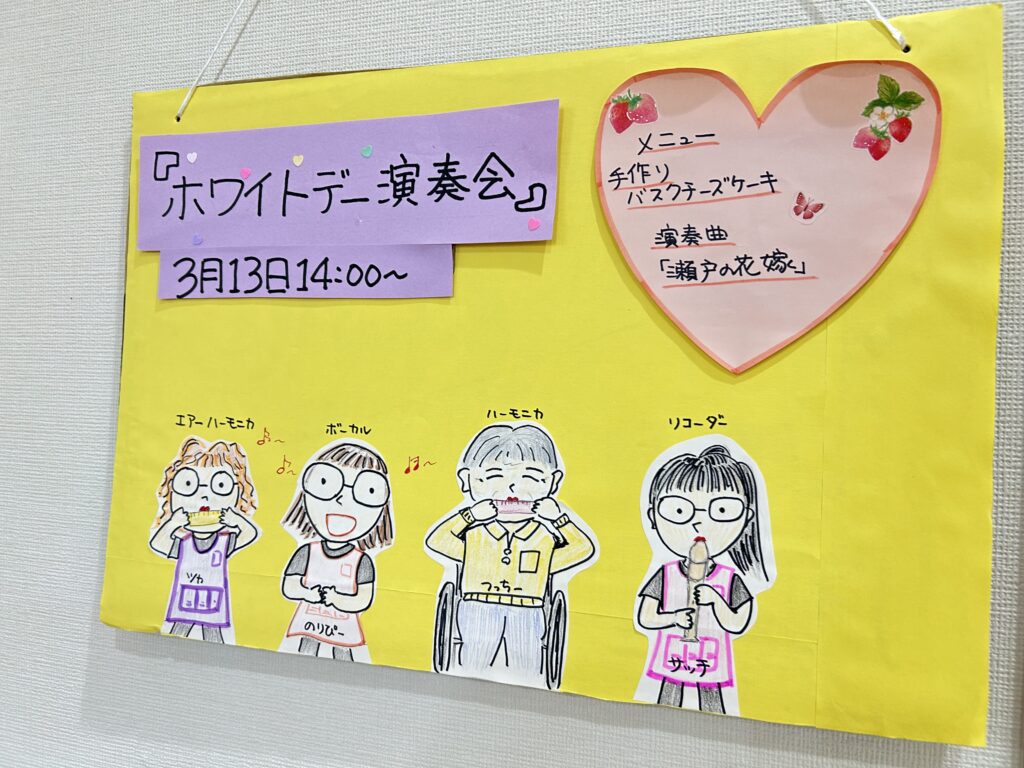 『ホワイトデー演奏会』
3月13日14:00~
メニュー
手作り
バスクチーズケーキ
演奏曲
「瀬戸の花嫁」
エアーハーモニカ
ボーカル
ハーモニカ
リコーダー
ツカ
のりぴー
つっちー
サッチ